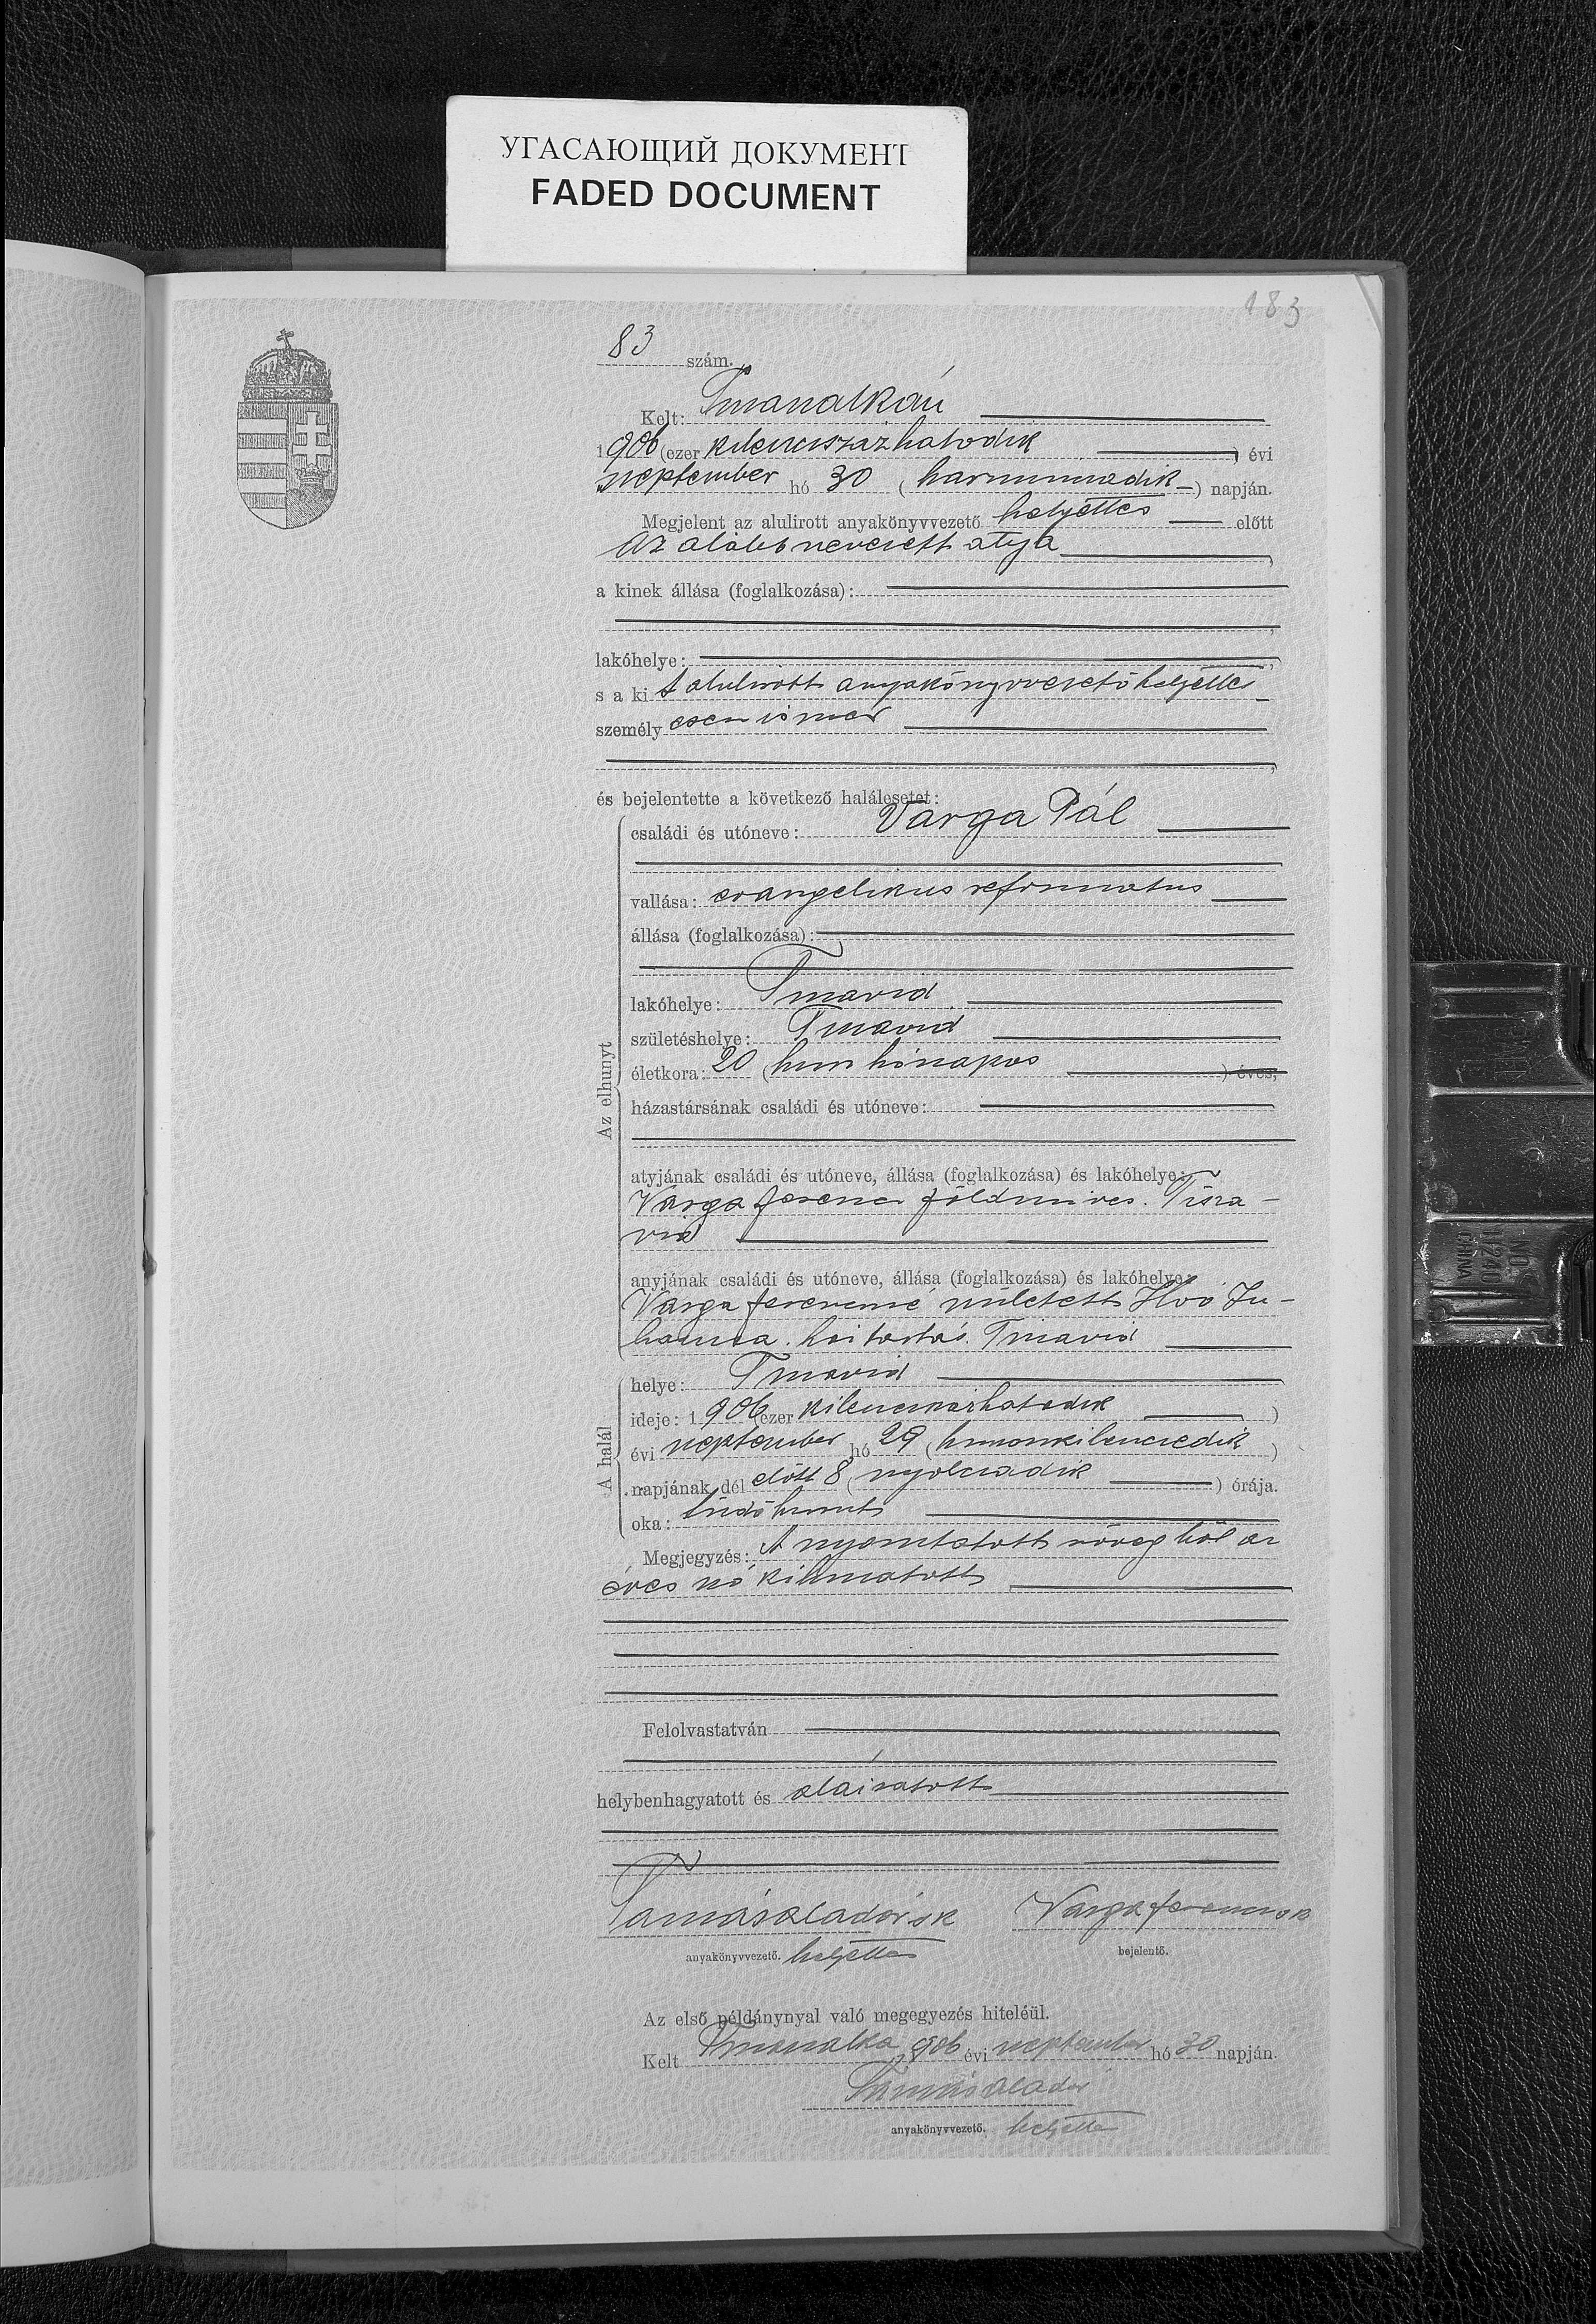 УГАСАЮЩИЙ ДОКУМЕНТ
FADED DOCUMENT
183
83 szám.
Kelt: Tiszasalkán
1906 (ezer kilencszázhatodik) évi
szeptember hó 30 (harmincadik) napján.
Megjelent az alulirott anyakönyvvezető helyettes előtt
Az alább nevezett atyja,
a kinek állása (foglalkozása):
lakóhelye:
s a ki t alulirott anyakönyvvezető helyettes
személy esen ismer
és bejelentette a következő halálesetet:
Az elhunyt
családi és utóneve: Varga Pál
vallása: evangelikus reformatus
állása (foglalkozása):
lakóhelye: Tiszavid
születéshelye: Tiszavid
életkora: 20 (husz hónapos) éves,
házastársának családi és utóneve:
atyjának családi és utóneve, állása (foglalkozása) és lakóhelye:
Varga Ferencz földmives. Tisza-
vid
anyjának családi és utóneve, állása (foglalkozása) és lakóhelye:
Varga Ferenczné született Ju-
hánna. háztartás. Tiszavid
A halál
helye: Tiszavid
ideje: 1906 (ezer kilenczszázhatodik)
évi szeptember hó 29 (huszonkilenczedik)
napjának dél előtt 8 (nyolczadik) órája.
oka: tüdőhurut
Megjegyzés: A nyomtatott szövegből az
éves szó kihuzatott
Felolvastatván
helybenhagyatott és aláiratott
Tamás Aladár sk Varga Ferencz sk
anyakönyvvezető. helyettes bejelentő.
Az első példánynyal való megegyezés hiteléül.
Kelt 906 évi szeptember hó 30 napján.
Tamás Aladár
anyakönyvvezető. helyettes